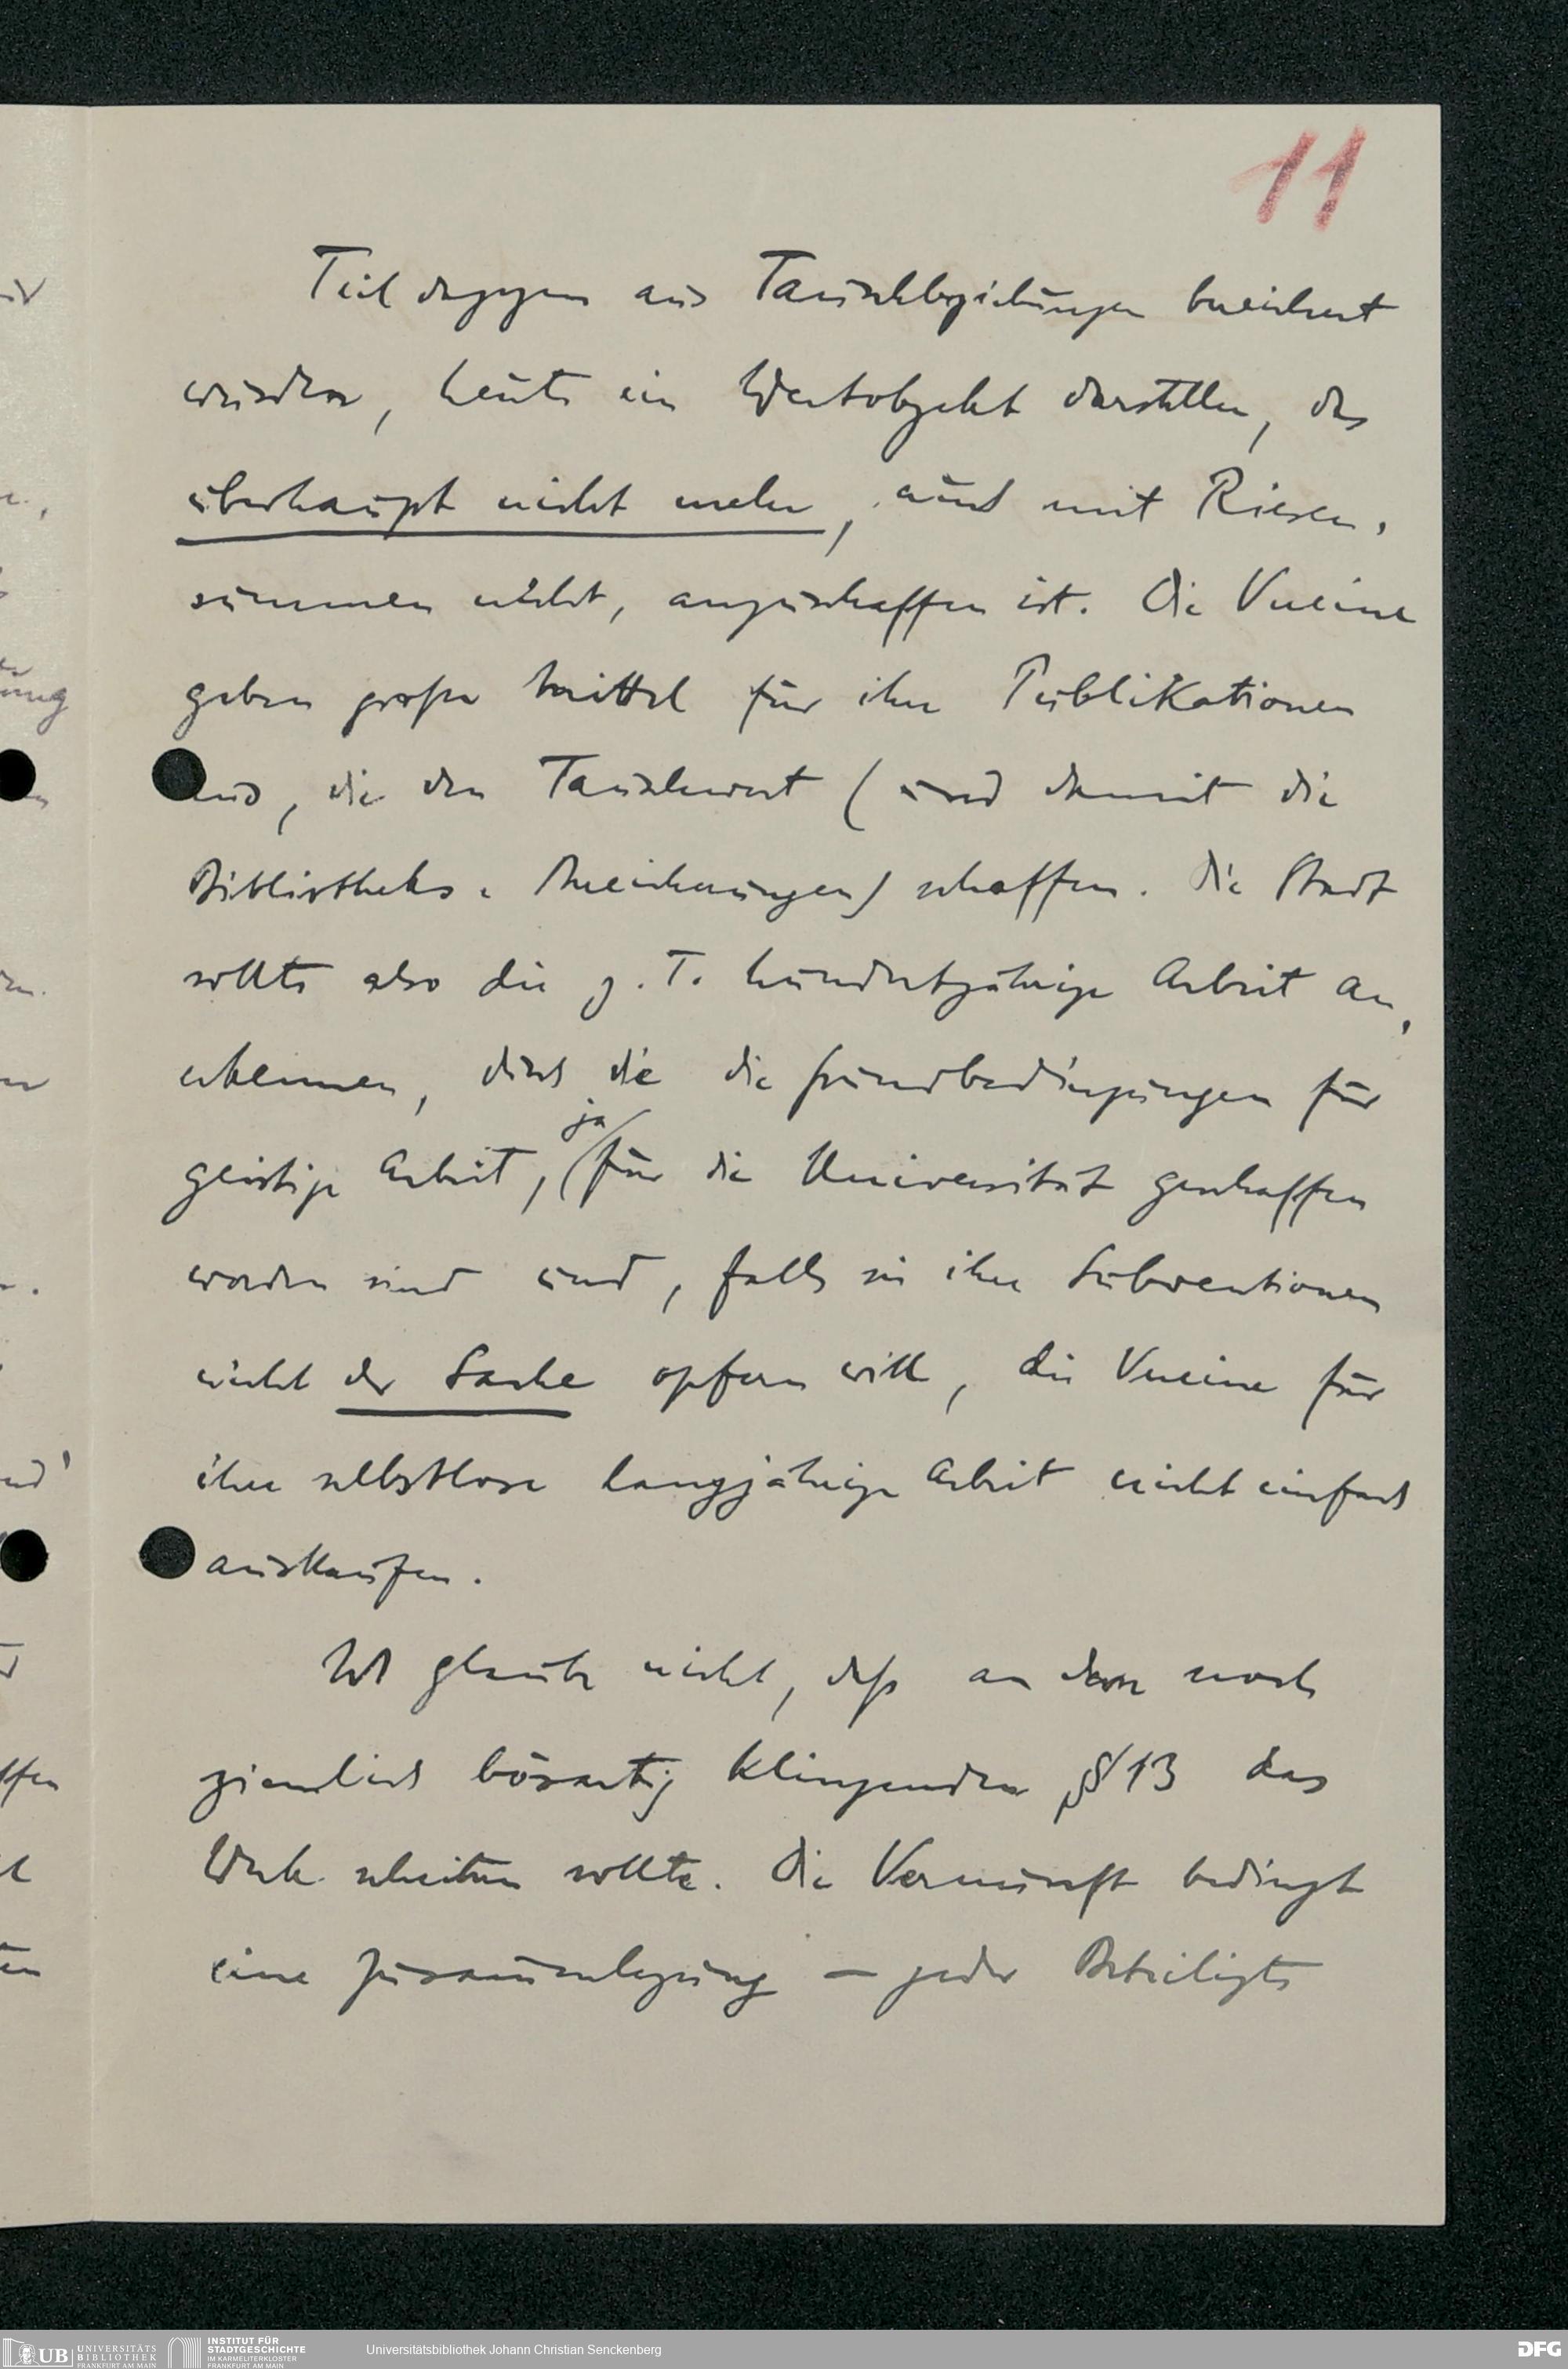 11
Teil dagegen aus Tauschbeziehungen bereichert
wurden, heute ein Wertobjekt darstellen, das
überhaupt nicht mehr, auch mit Riesen-
summen nicht, anzuschaffen ist. Die Vereine
geben große Mittel für ihre Publikationen
aus, die den Tauschwert (und damit die
Bibliotheks-Bereicherungen) schaffen. Die Stadt
sollte also die z. T. hundertjährige Arbeit an-
erkennen, durch die die Grundbedingungen für
geistige Arbeit, ja für die Universität geschaffen
worden sind und, falls sie ihre Subventionen
nicht der Sache opfern will, die Vereine für
ihre selbstlose langjährige Arbeit nicht einfach
auskaufen.
Ich glaube nicht, daß an dem noch
ziemlich bösartig klingenden § 13 das
Werk scheitern sollte. Die Vernunft bedingt
eine Zusammenlegung – jeder Beteiligte
UB UNIVERSITÄTS
BIBLIOTHEK
FRANKFURT AM MAIN
INSTITUT FÜR
STADTGESCHICHTE
IM KARMELITERKLOSTER
FRANKFURT AM MAIN
Universitätsbibliothek Johann Christian Senckenberg
DFG